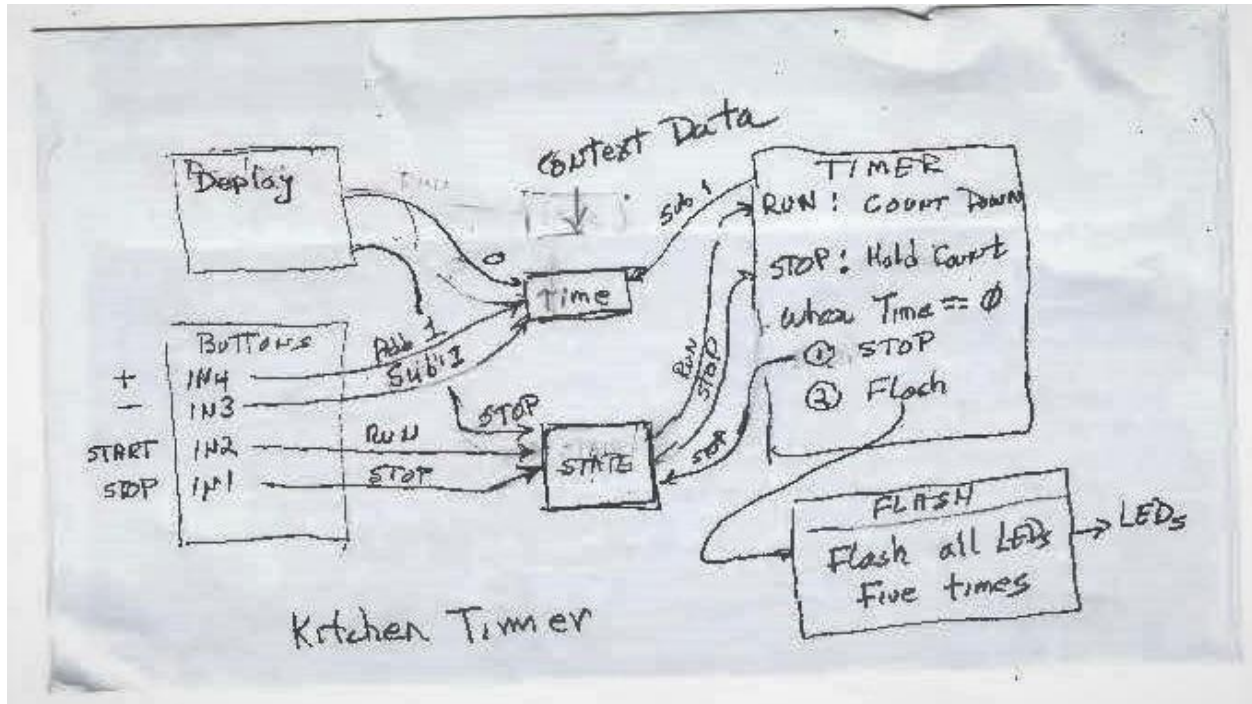 Context Data
Deploy
0
Sub 1
Time
TIMER
RUN : COUNT DOWN
STOP : Hold Count
when Time == Ø
① STOP
② Flash
BUTTONS
+ IN4 Add 1
- IN3 Sub 1
START IN2 RUN
STOP IN1 STOP
STOP
STATE
RUN
STOP
STOP
FLASH
Flash all LEDs
Five times
LEDs
Kitchen Timer